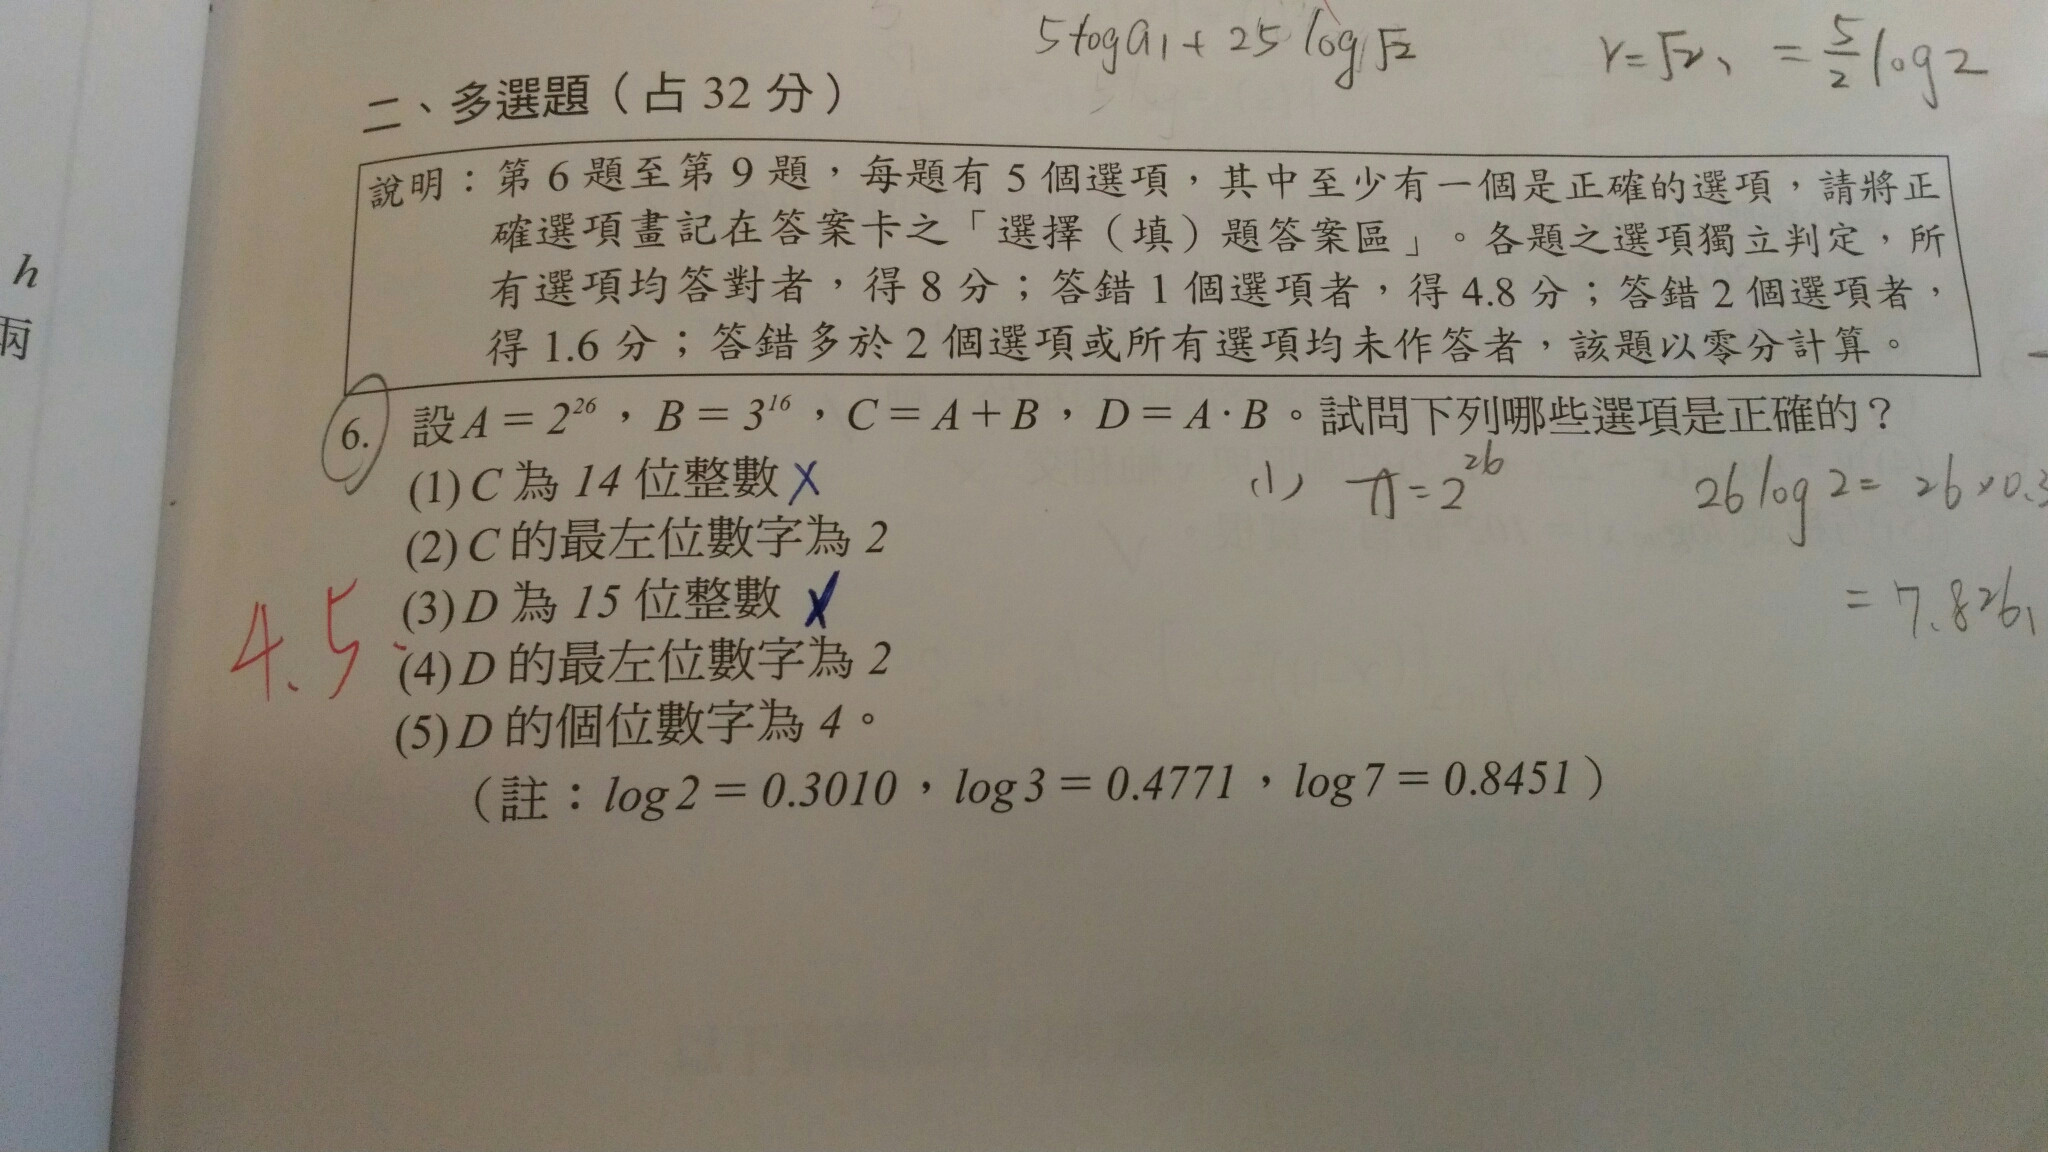 5loga₁+25log√2
r=√2、 =5/2 log2
二、多選題（占32分）
說明：第6題至第9題，每題有5個選項，其中至少有一個是正確的選項，請將正
確選項畫記在答案卡之「選擇（填）題答案區」。各題之選項獨立判定，所
有選項均答對者，得8分；答錯1個選項者，得4.8分；答錯2個選項者，
得1.6分；答錯多於2個選項或所有選項均未作答者，該題以零分計算。
h
兩
6. 設A=2²⁶，B=3¹⁶，C=A+B，D=A·B。試問下列哪些選項是正確的？
(1)C為14位整數 ×
(2)C的最左位數字為2
(3)D為15位整數 ×
(4)D的最左位數字為2
(5)D的個位數字為4。
（註：log2=0.3010，log3=0.4771，log7=0.8451）
(1) A=2²⁶ 26log2=26×0.3
=7.826
4.5